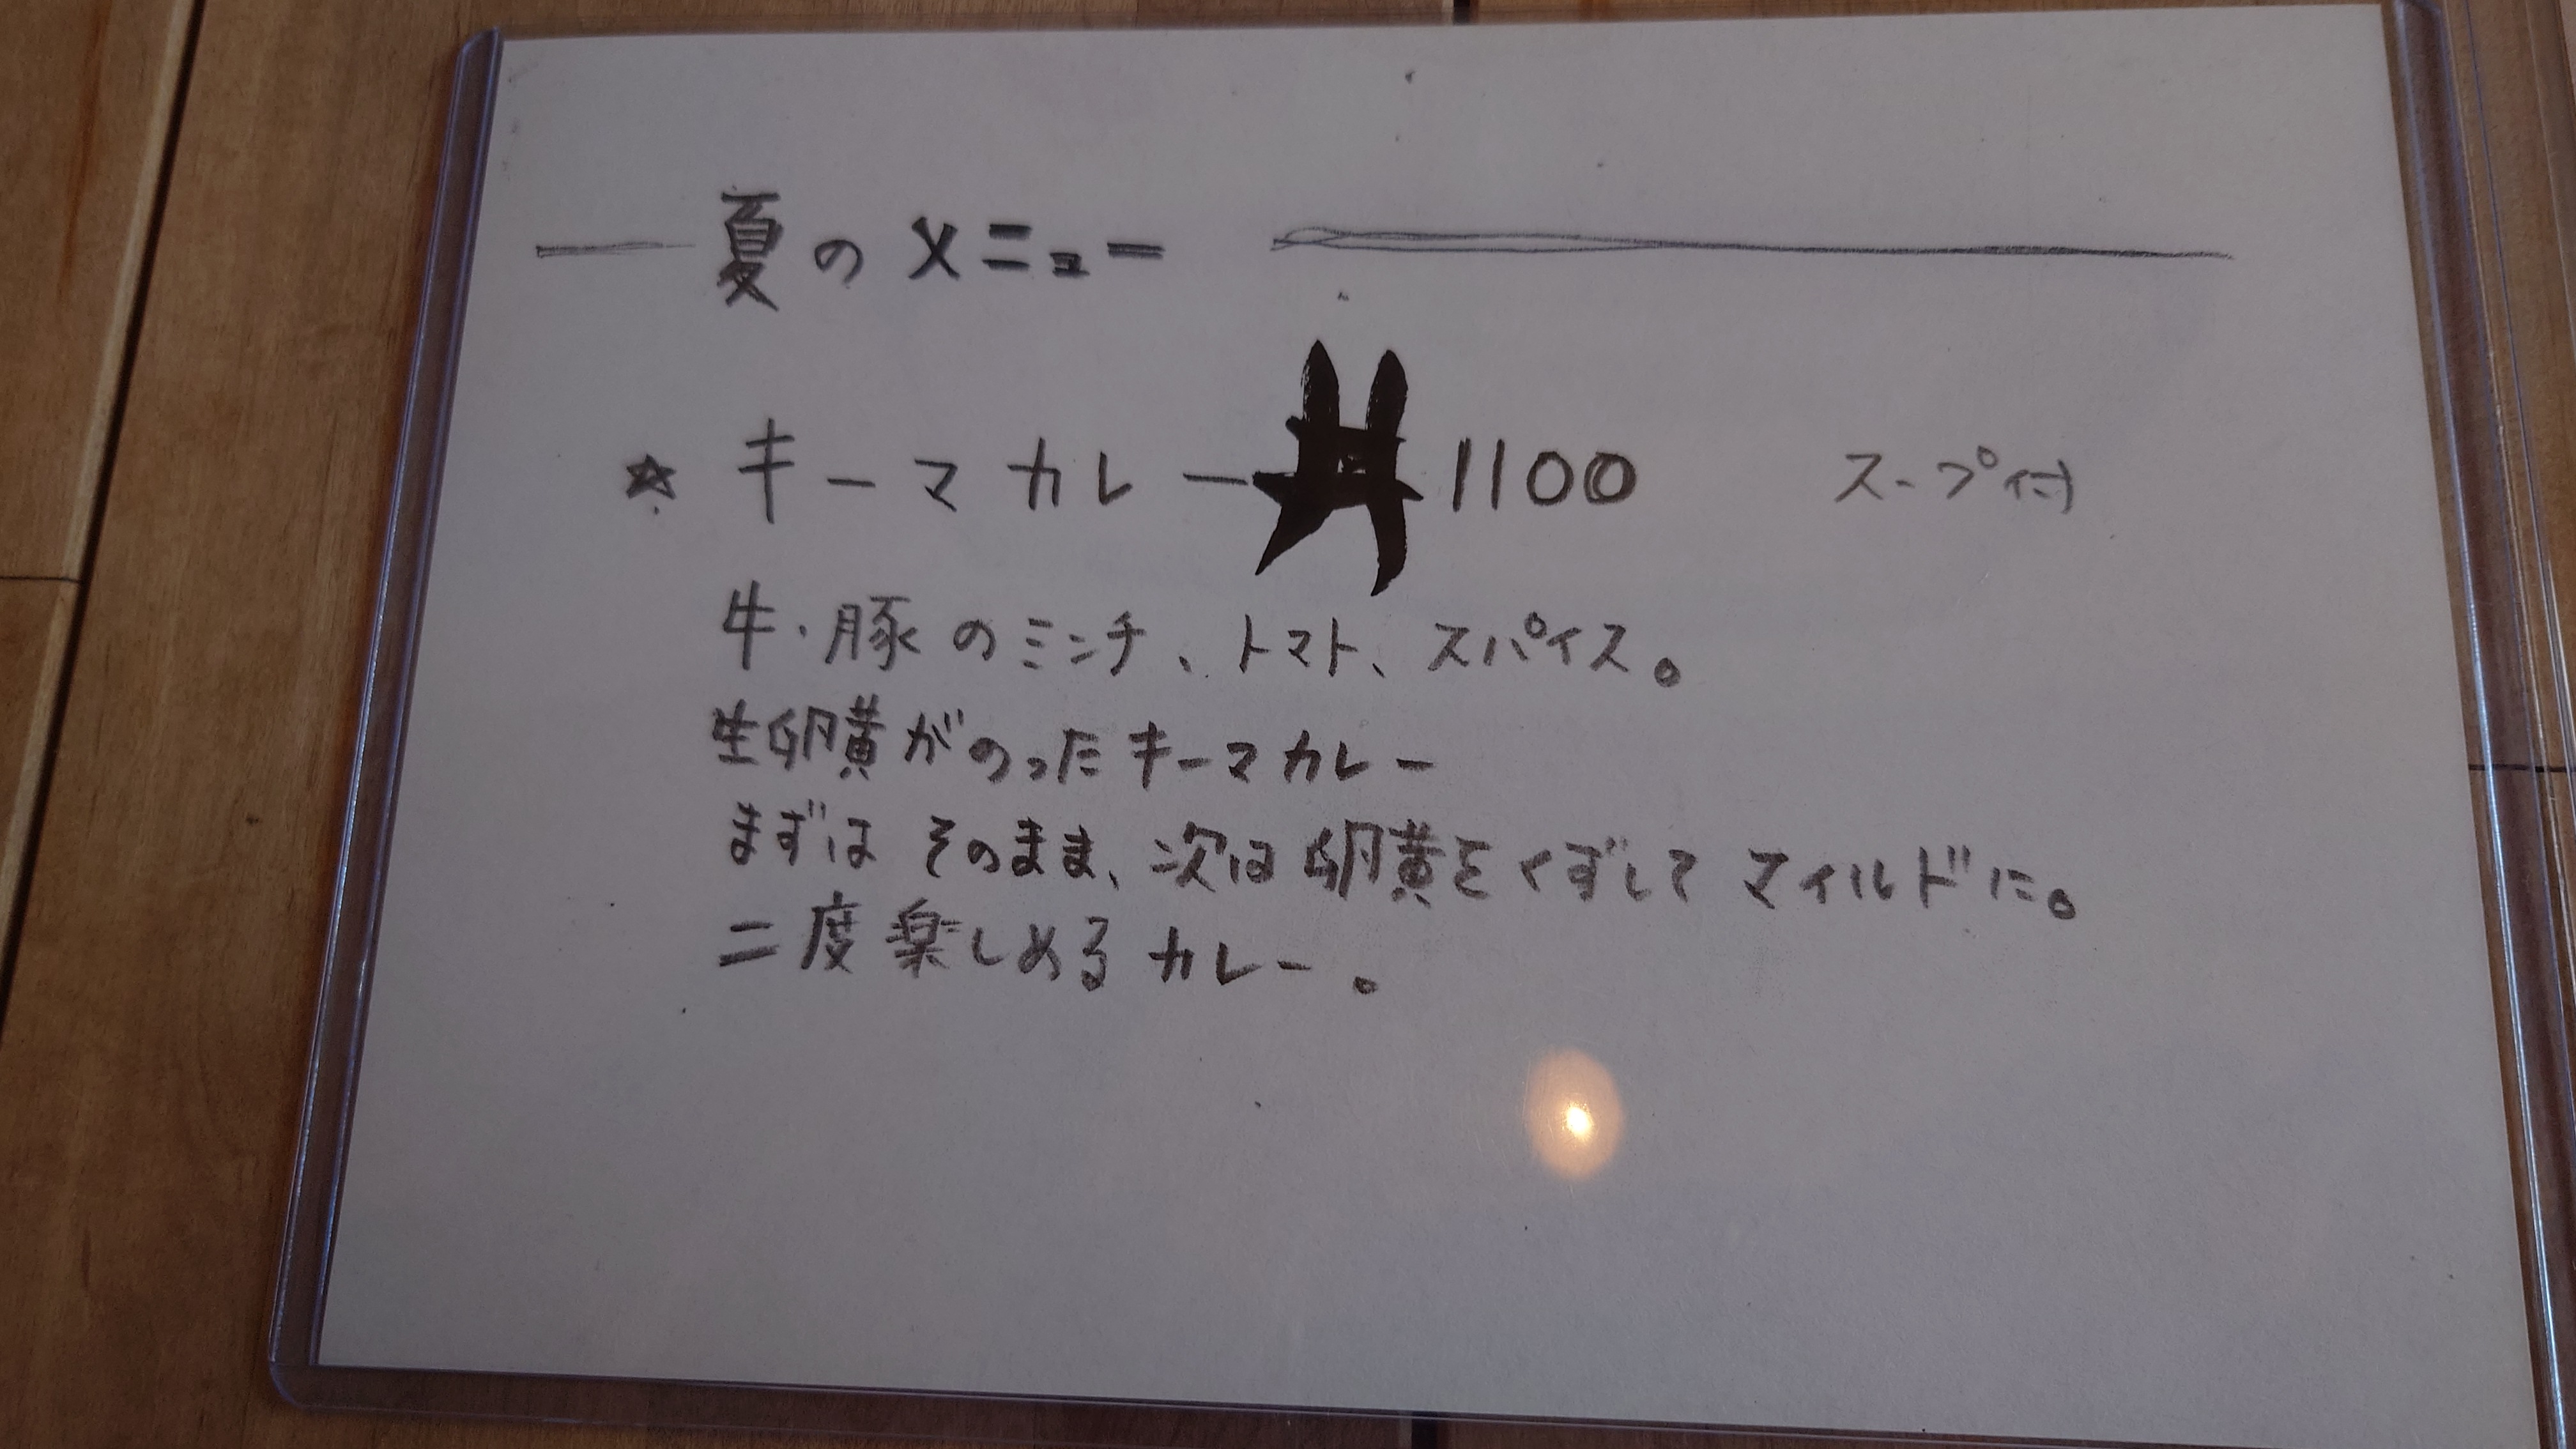 夏のメニュー
☆ キーマカレー 1100 スープ付
牛・豚のミンチ、トマト、スパイス。
生卵黄がのったキーマカレー
まずは そのまま、次は卵黄をくずしてマイルドに。
二度楽しめるカレー。